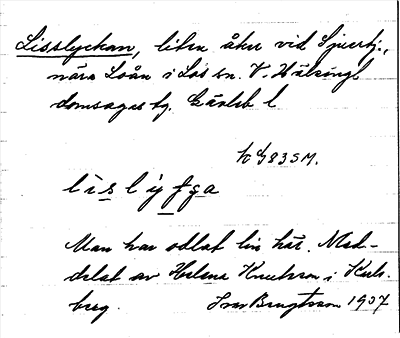 Lisslyckan, liten åker vid Spjuerbj.,
nära Loån i Los sn. V. Hälsingl
domsagas tg. Gävleb l
K G835M.
lislyfga
Man har odlat lin här. Med-
delat av Helena Knutsson i Karls-
berg. Ivar Bengtsson 1937